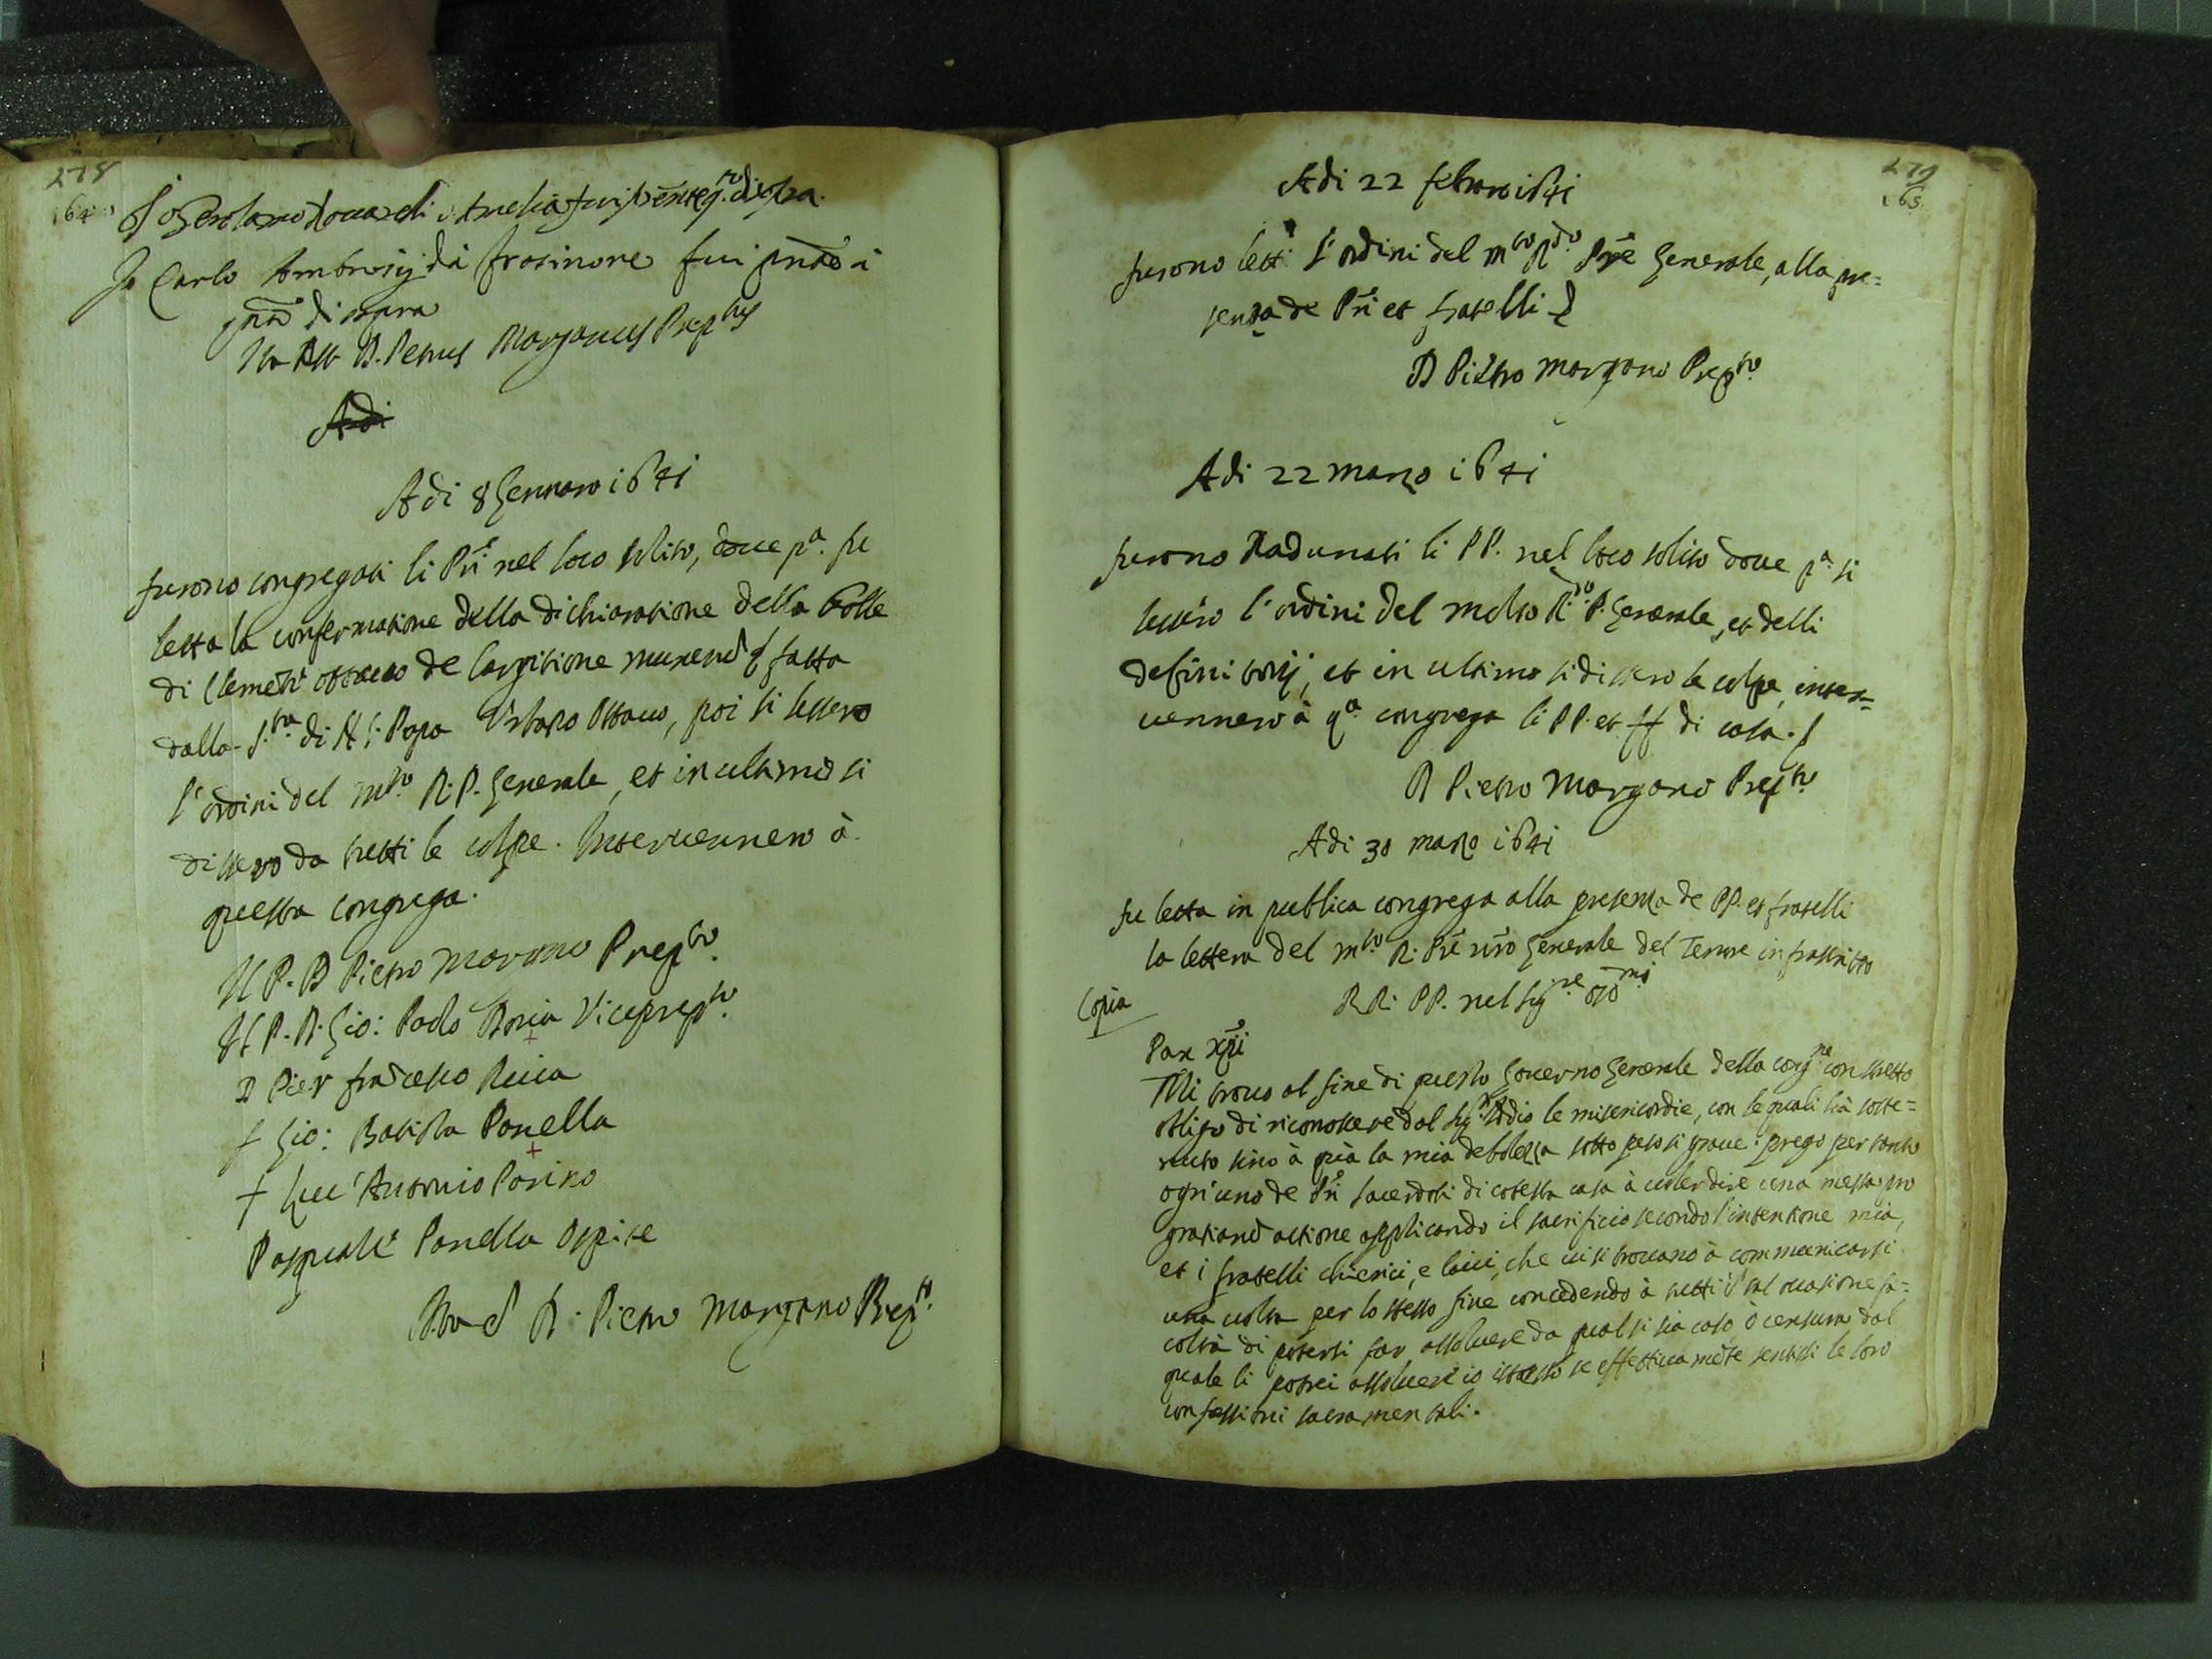 278
164
Io Gerolamo di Amelia fui p̃sente q.to di sopra
Io Carlo Ambrosij da frosinone fui pnte à
qnto di sopra
Ita est D. Petrus Margonus Prep.tus
Adi
Adi 8 Gennaro 1641
furono congregati li Pri nel loco solito, doue p.a fu
letta la confermatione della dichiaratione della bolla
di Clemẽte ottauo de largitione munerum fatta
dalla S.tà di N. S. Papa Vrbano Ottauo, poi si lessero
l'ordini del m.to R. P. Generale, et in ultimo si
dissero da tutti le colpe. Interuennero à
questa congrega.
Il P. D Pietro Margano Prep.to
Il P. D. Gio: Paolo Boria Viceprep.to
D Pier francesco Ricca
f Gio: Batista Panella
f Luc'Antonio Porino
Pasquale Panella Ospite
Ita è D. Pietro Margano Prep.to
279
165
Adi 22 febraro 1641
furono letti l'ordini del m.to R.do Prẽ Generale, alla pre=
senza de Pri et fratelli
D Pietro Margano Prep.to
Adi 22 marzo 1641
furono Radunati li PP. nel loco solito doue p.a si
lessero l'ordini del molto R.do P. Generale, et delli
definitorij, et in ultimo si dissero le colpe, inter=
uennero à q.a congrega li PP. et ff di casa.
D Pietro Margano Prep.to
Adi 30 marzo 1641
fu letta in publica congrega alla presenza de PP. et fratelli
la lettera del m.to R. Prẽ nro Generale del Tenore infrascritto
Copia
RR: PP. nel Sig.re oss.mi
Pax Xpi
Mi trouo al fine di questo Gouerno Generale della cong.ne con stretto
obligo di riconoscere dal Sig.re Iddio le misericordie, con le quali hà soste=
nuto sino à quà la mia debolezza sotto peso si graue. prego per tanto
ogn'uno de Pri sacerdoti di cotesta casa à uoler dire una messa pro
gratiarum actione applicando il sacrificio secondo l'intentione mia,
et i fratelli chierici, e laici, che iui si trouano à communicarsi
una uolta per lo stesso fine concedendo à tutti ī tal occasione fa=
coltà di potersi far assoluere da qual si sia caso, ò censura dal
quale li potrei assoluere io istesso se effettiuamẽte sentissi le loro
confessioni sacramentali.